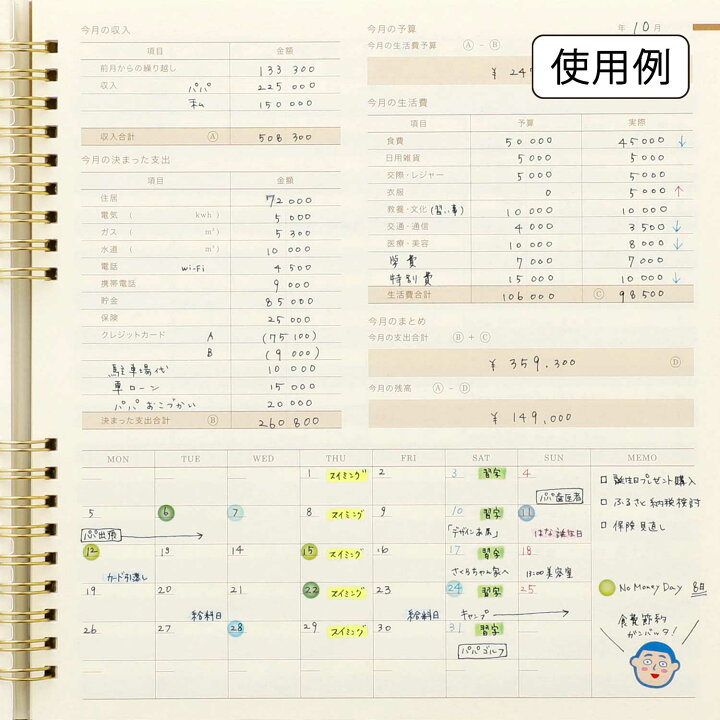 使用例
年 10 月
今月の収入
項目 金額
前月からの繰り越し 133 300
収入 パパ 225 000
私 150 000
収入合計 Ⓐ 508 300
今月の決まった支出
項目 金額
住居 72 000
電気 ( kwh ) 5 000
ガス ( m³ ) 5 300
水道 ( m³ ) 10 000
電話 Wi-Fi 4 500
携帯電話 9 000
貯金 85 000
保険 25 000
クレジットカード A (75 100)
B (9 000)
駐車場代 10 000
車ローン 15 000
パパおこづかい 20 000
決まった支出合計 Ⓑ 260 800
今月の予算
今月の生活費予算 Ⓐ - Ⓑ
¥ 247
今月の生活費
項目 予算 実際
食費 50 000 45 000 ↓
日用雑貨 5 000 5 000
交際・レジャー 5 000 5 000
衣服 0 5 000 ↑
教養・文化 (習い事) 10 000 10 000
交通・通信 4 000 3 500 ↓
医療・美容 10 000 8 000 ↓
学費 7 000 7 000
特別費 15 000 10 000 ↓
生活費合計 106 000 Ⓒ 98 500
今月のまとめ
今月の支出合計 Ⓑ + Ⓒ
¥ 359,300 Ⓓ
今月の残高 Ⓐ - Ⓓ
¥ 149,000
MON TUE WED THU FRI SAT SUN MEMO
1 スイミング 2 3 習字 4
パパ歯医者
5 6 7 8 スイミング 9 10 習字 11
パパ出張 「デザインあ展」 はな誕生日
12 13 14 15 スイミング 16 17 習字 18
カード引落し さくらちゃん家へ 13:00美容室
19 20 21 22 スイミング 23 24 習字 25
給料日 給料日 キャンプ
26 27 28 29 スイミング 30 31 習字
パパゴルフ
□ 誕生日プレゼント購入
□ ふるさと納税検討
□ 保険見直し
No Money Day 8日
食費節約
ガンバッタ!